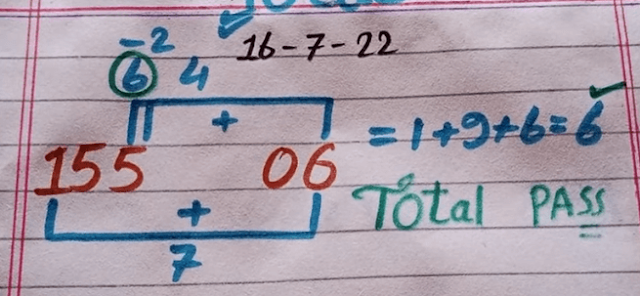 -2
16-7-22
6 4
+
155 06 =1+9+6=6
+
7
Total PASS